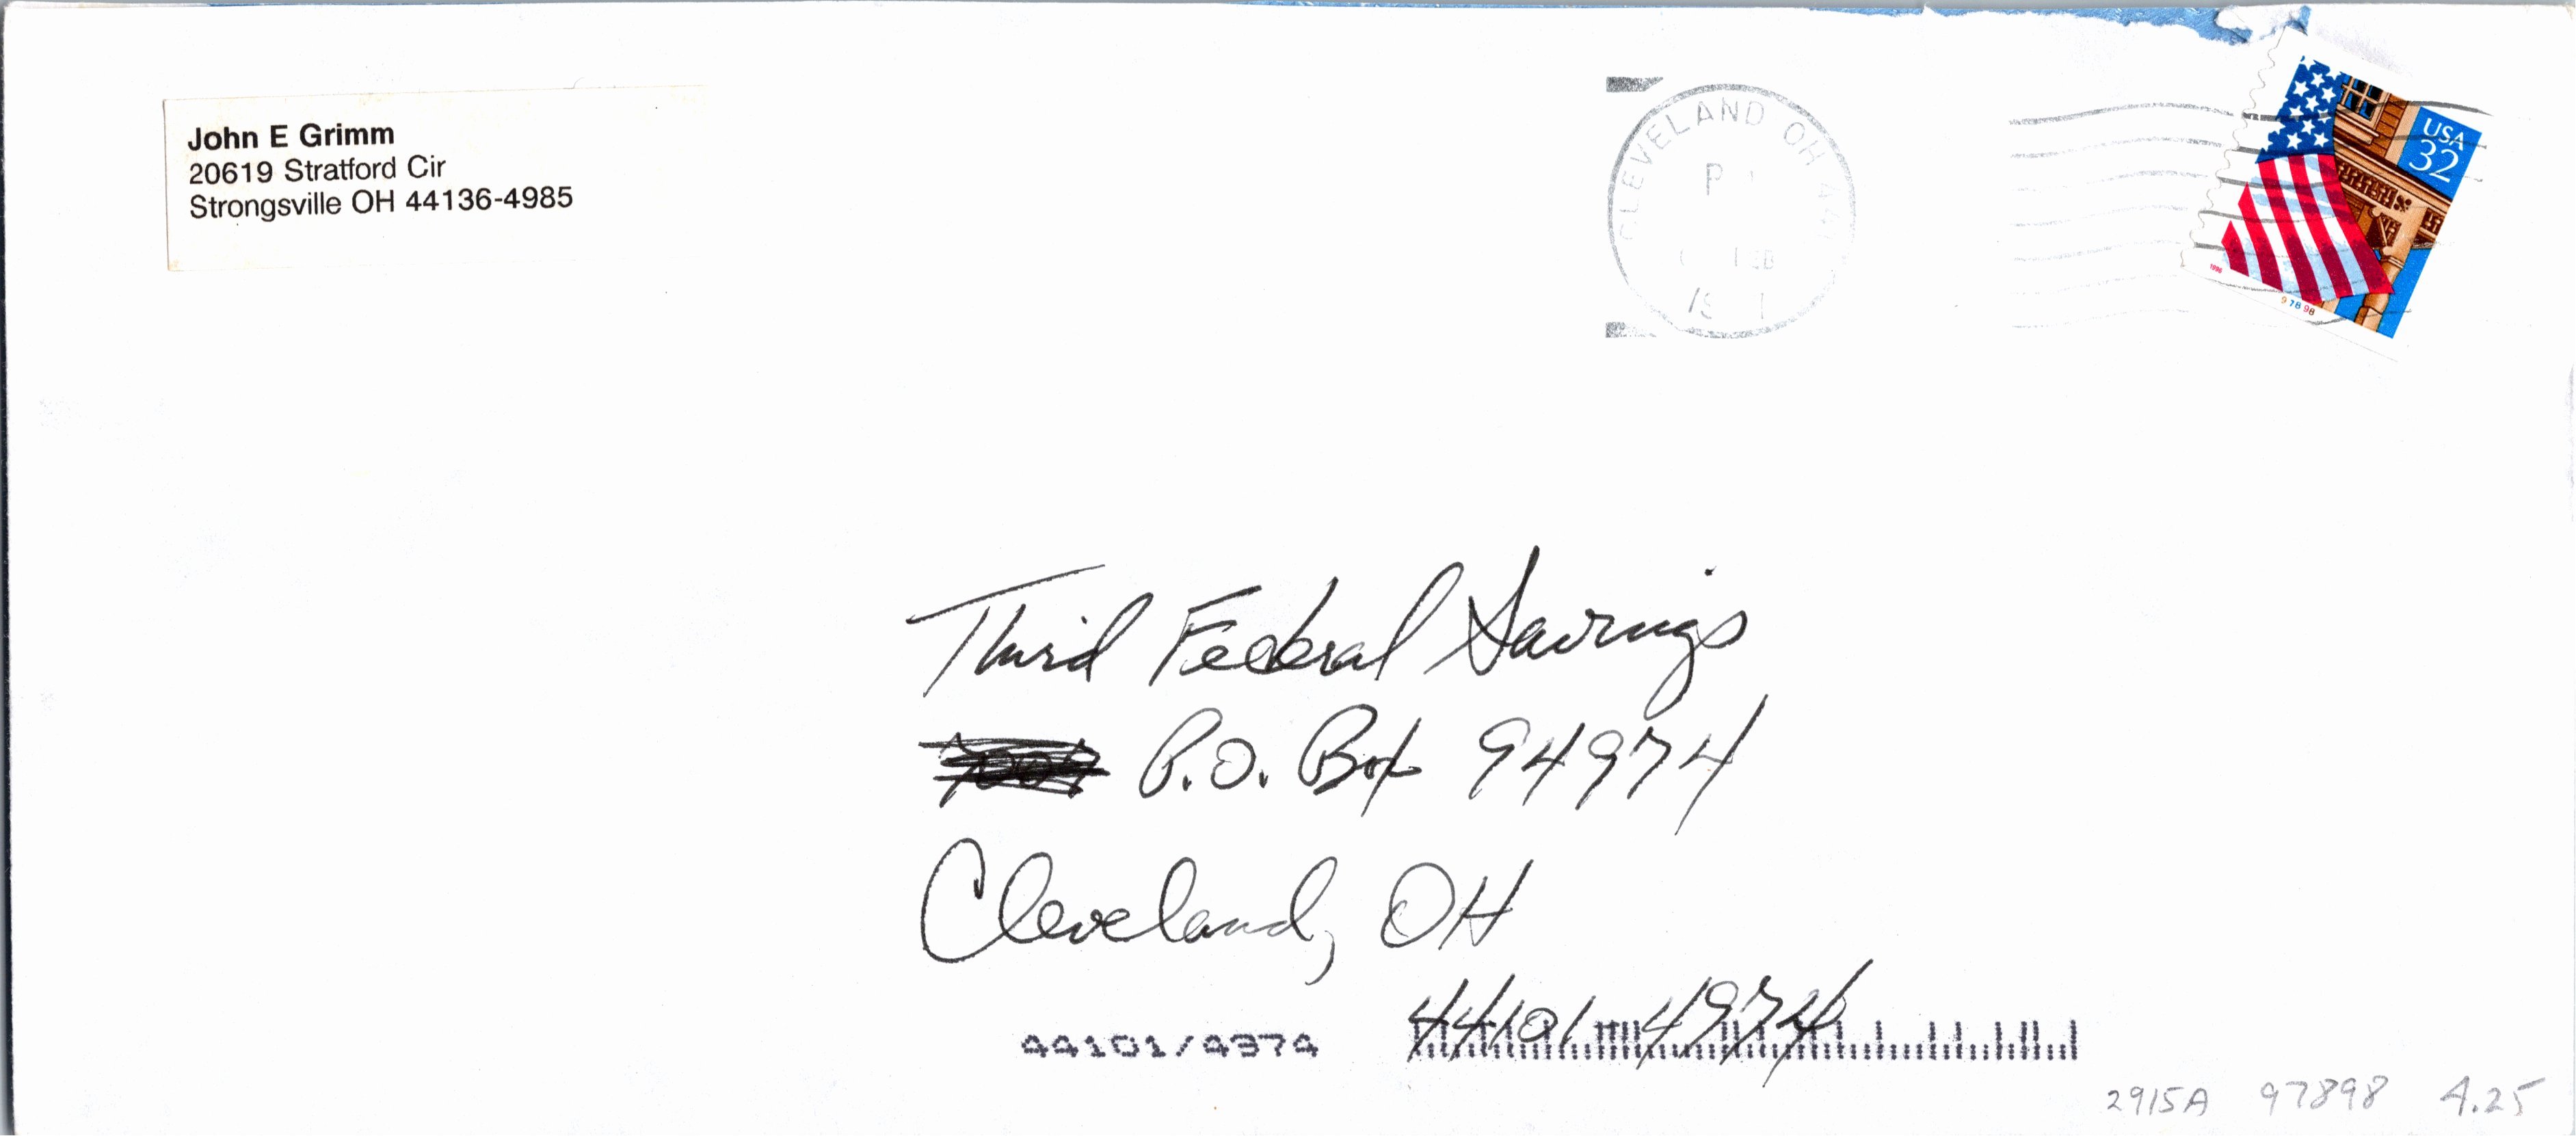 John E Grimm
20619 Stratford Cir
Strongsville OH 44136-4985
CLEVELAND OH
USA
32
1996
97898
Third Federal Savings
P.O. Box 94974
Cleveland, OH
44101-4974
44101/4974
2915A 97898 4.25